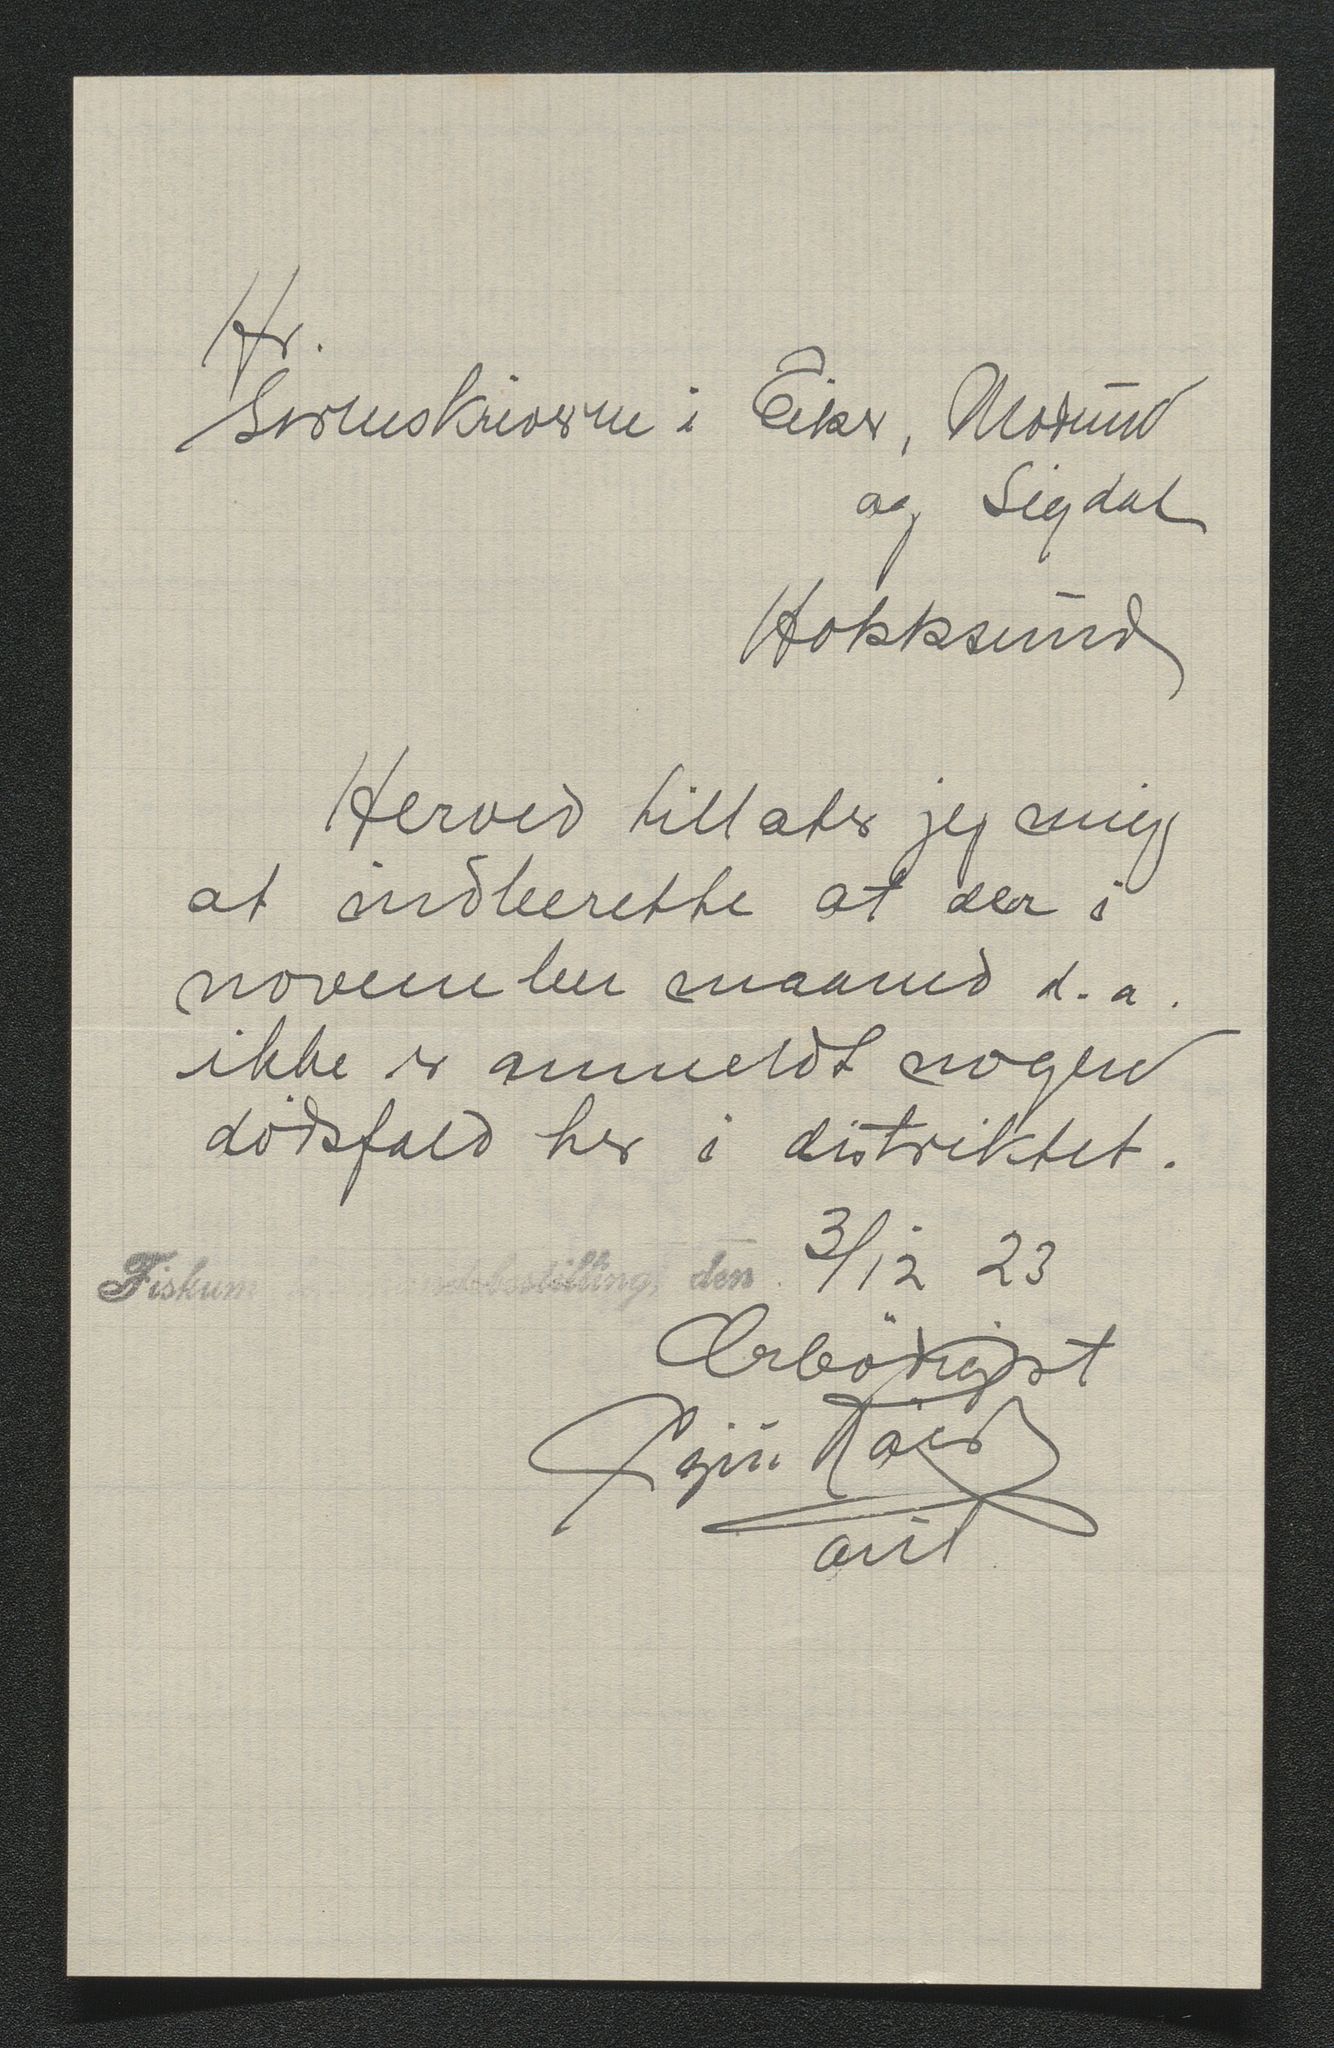 Hr.
Sorenskriveren i Eiker, Modum
og Sigdal
Hokksund
Herved tillater jeg mig
at indberette at der i
november maaned d. a.
ikke er anmeldt nogen
dödsfald her i distriktet.
Fiskum lensmandsbestilling, den 3/12 23
Ærbödigst